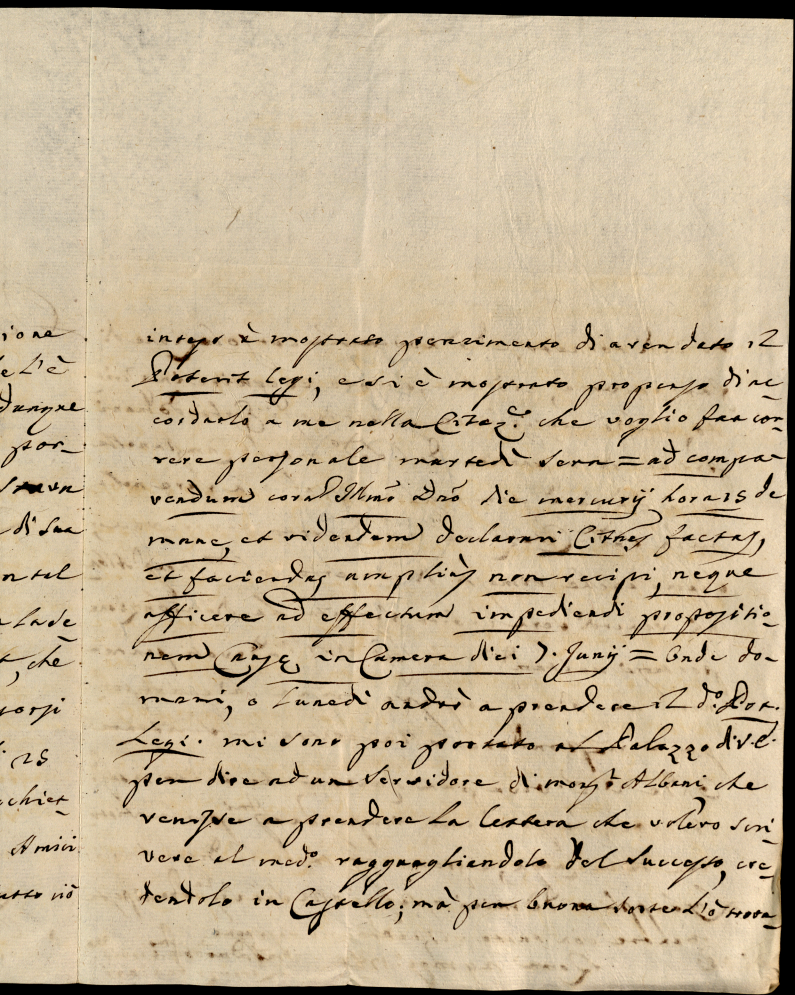 ione
e l'è
dunque
por-
di sua
n tal
la de
, che
corpi
25
chiet-
Amici
utto ciò
inteso à mostrato pentimento di aver dato il
Poterit legi, e si è mostrato propenso di ac-
cordarlo a me nella Citaz.e che voglio far cor-
rere personale martedì sera = ad compa-
rendum coram Illmo Dno die mercurij hora 15 de
mane, et videndum declarari Citnes factas,
et faciendas amplius non recipi, neque
afficere ad effectum impediendi propositio-
nem Causę in Camera diei 7. Junij = Onde do-
mani, o lunedì andrò a prendere il do. Pot.
Legi. mi sono poi portato al Palazzo di V.E.
per dire ad un servidore di monsr Albani che
venisse a prendere la lettera che volevo scri-
vere al medo. ragguagliandolo del successo, cre-
dendolo in Castello; mà per buona sorte l'ò trova-